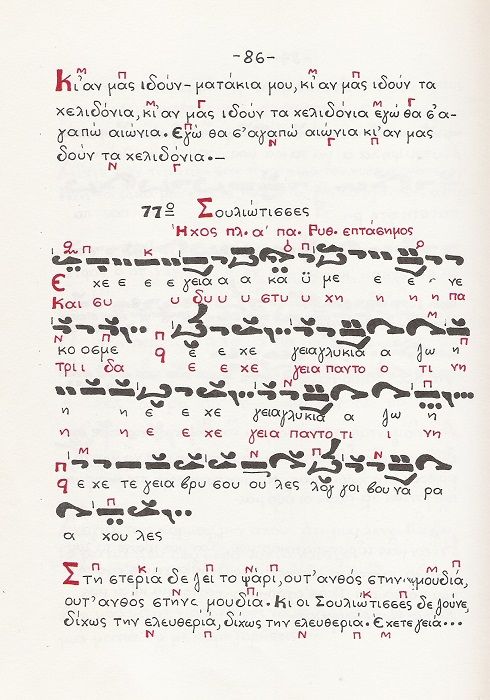 -86-
Κι᾽αν μας ιδούν-ματάκια μου, κι᾽αν μας ιδούν τα
χελιδόνια, κι᾽αν μας ιδούν τα χελιδόνια εγώ θα σ᾽α-
γαπώ αιώνια. Εγώ θα σ᾽αγαπώ αιώνια κι᾽αν μας
δούν τα χελιδόνια.-
77ο Σουλιώτισσες
Ήχος πλ. α΄ πα. Ρυθ. επτάσημος
Ε χε ε ε ε γεια α α κα ϋ με ε ε ε νε
Και συ υ δυ υ υ στυ χη η η η πα
κο οσμε ε ε ε χε γειαγλυκιά α ζω η
τρι ι δα ε ε ε χε γεια παντο ο τι νη
η η ε ε χε γειαγλυκια α ζω η
η η ε ε χε γεια παντο τι ι νη
ε χε τε γεια βρυ σου ου λες λογ γοι βου να ρα
α χου λες
Στη στεριά δε ζει το ψάρι, ουτ᾽ανθός στην αμουδιά,
ουτ᾽ανθός στην αμουδιά. Κι οι Σουλιώτισσες δε ζούνε,
δίχως την ελευθεριά, δίχως την ελευθεριά. Έχετε γεια...